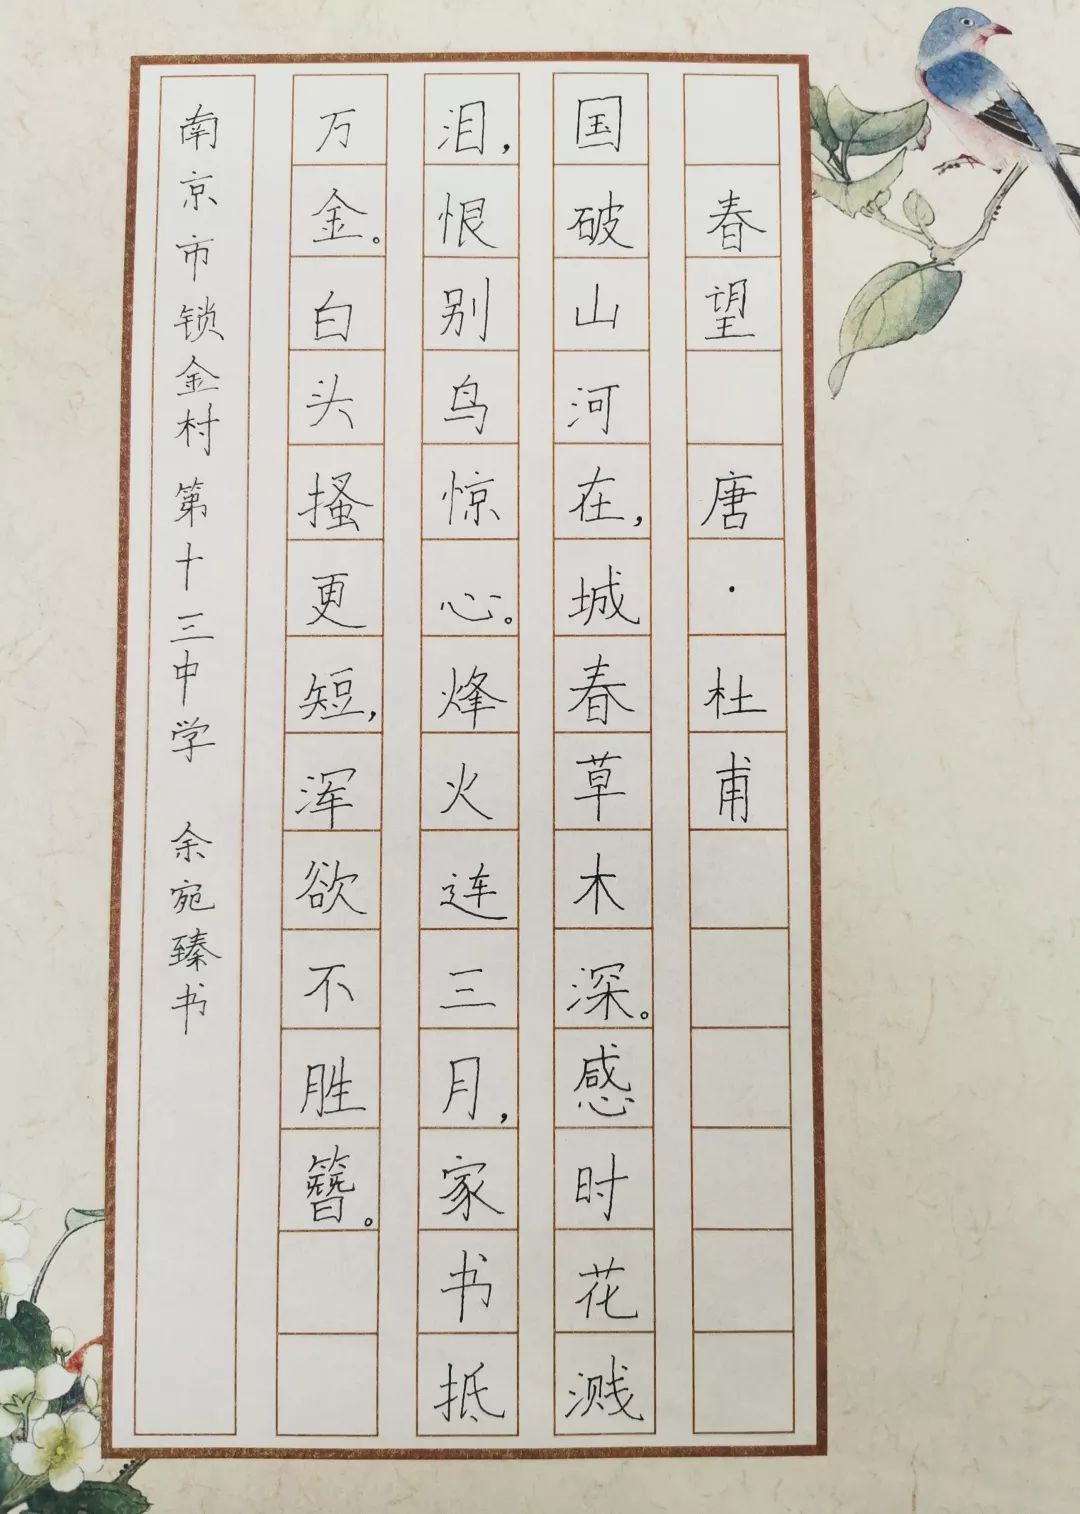 春望 唐·杜甫
国破山河在，城春草木深。感时花溅
泪，恨别鸟惊心。烽火连三月，家书抵
万金。白头搔更短，浑欲不胜簪。
南京市锁金村第十三中学 余宛臻书